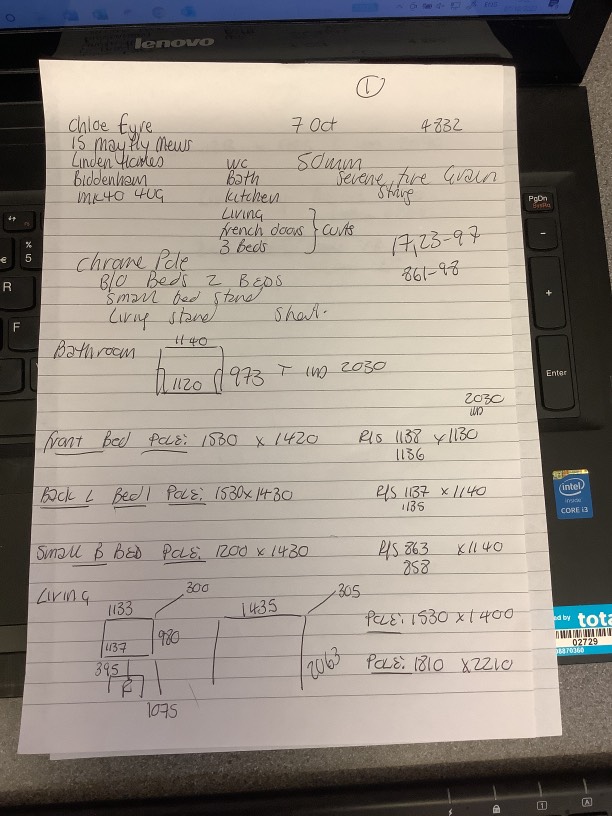 lenovo
1
Chloe Eyre 7 Oct 4832
15 mayfly mews
Linden Homes WC 50mm
Biddenham Bath Serene, fire Grain
MK40 4UG Kitchen String
Living
french doors } Curts 17,23-97
3 Beds 861-98
Chrome Pole
B/O Beds 2 BEDS
Small bed stand
Living stand Short.
Bathroom 1140
1120 973 T IND 2030
2030
IND
Front Bed POLE: 1530 x 1420 R/S 1138 x 1130
1136
Back L Bed 1 POLE: 1530x1430 R/S 1137 x 1140
1135
Small B BED POLE: 1200 x 1430 R/S 863 x 1140
858
Living 300 305
1133 1435
POLE: 1530 x 1400
1137 980
2063 POLE: 1810 x 2210
395
R
1075
PgDn
SysRq
Enter
intel
inside
CORE i3
total
02729
€ % 5
R
F